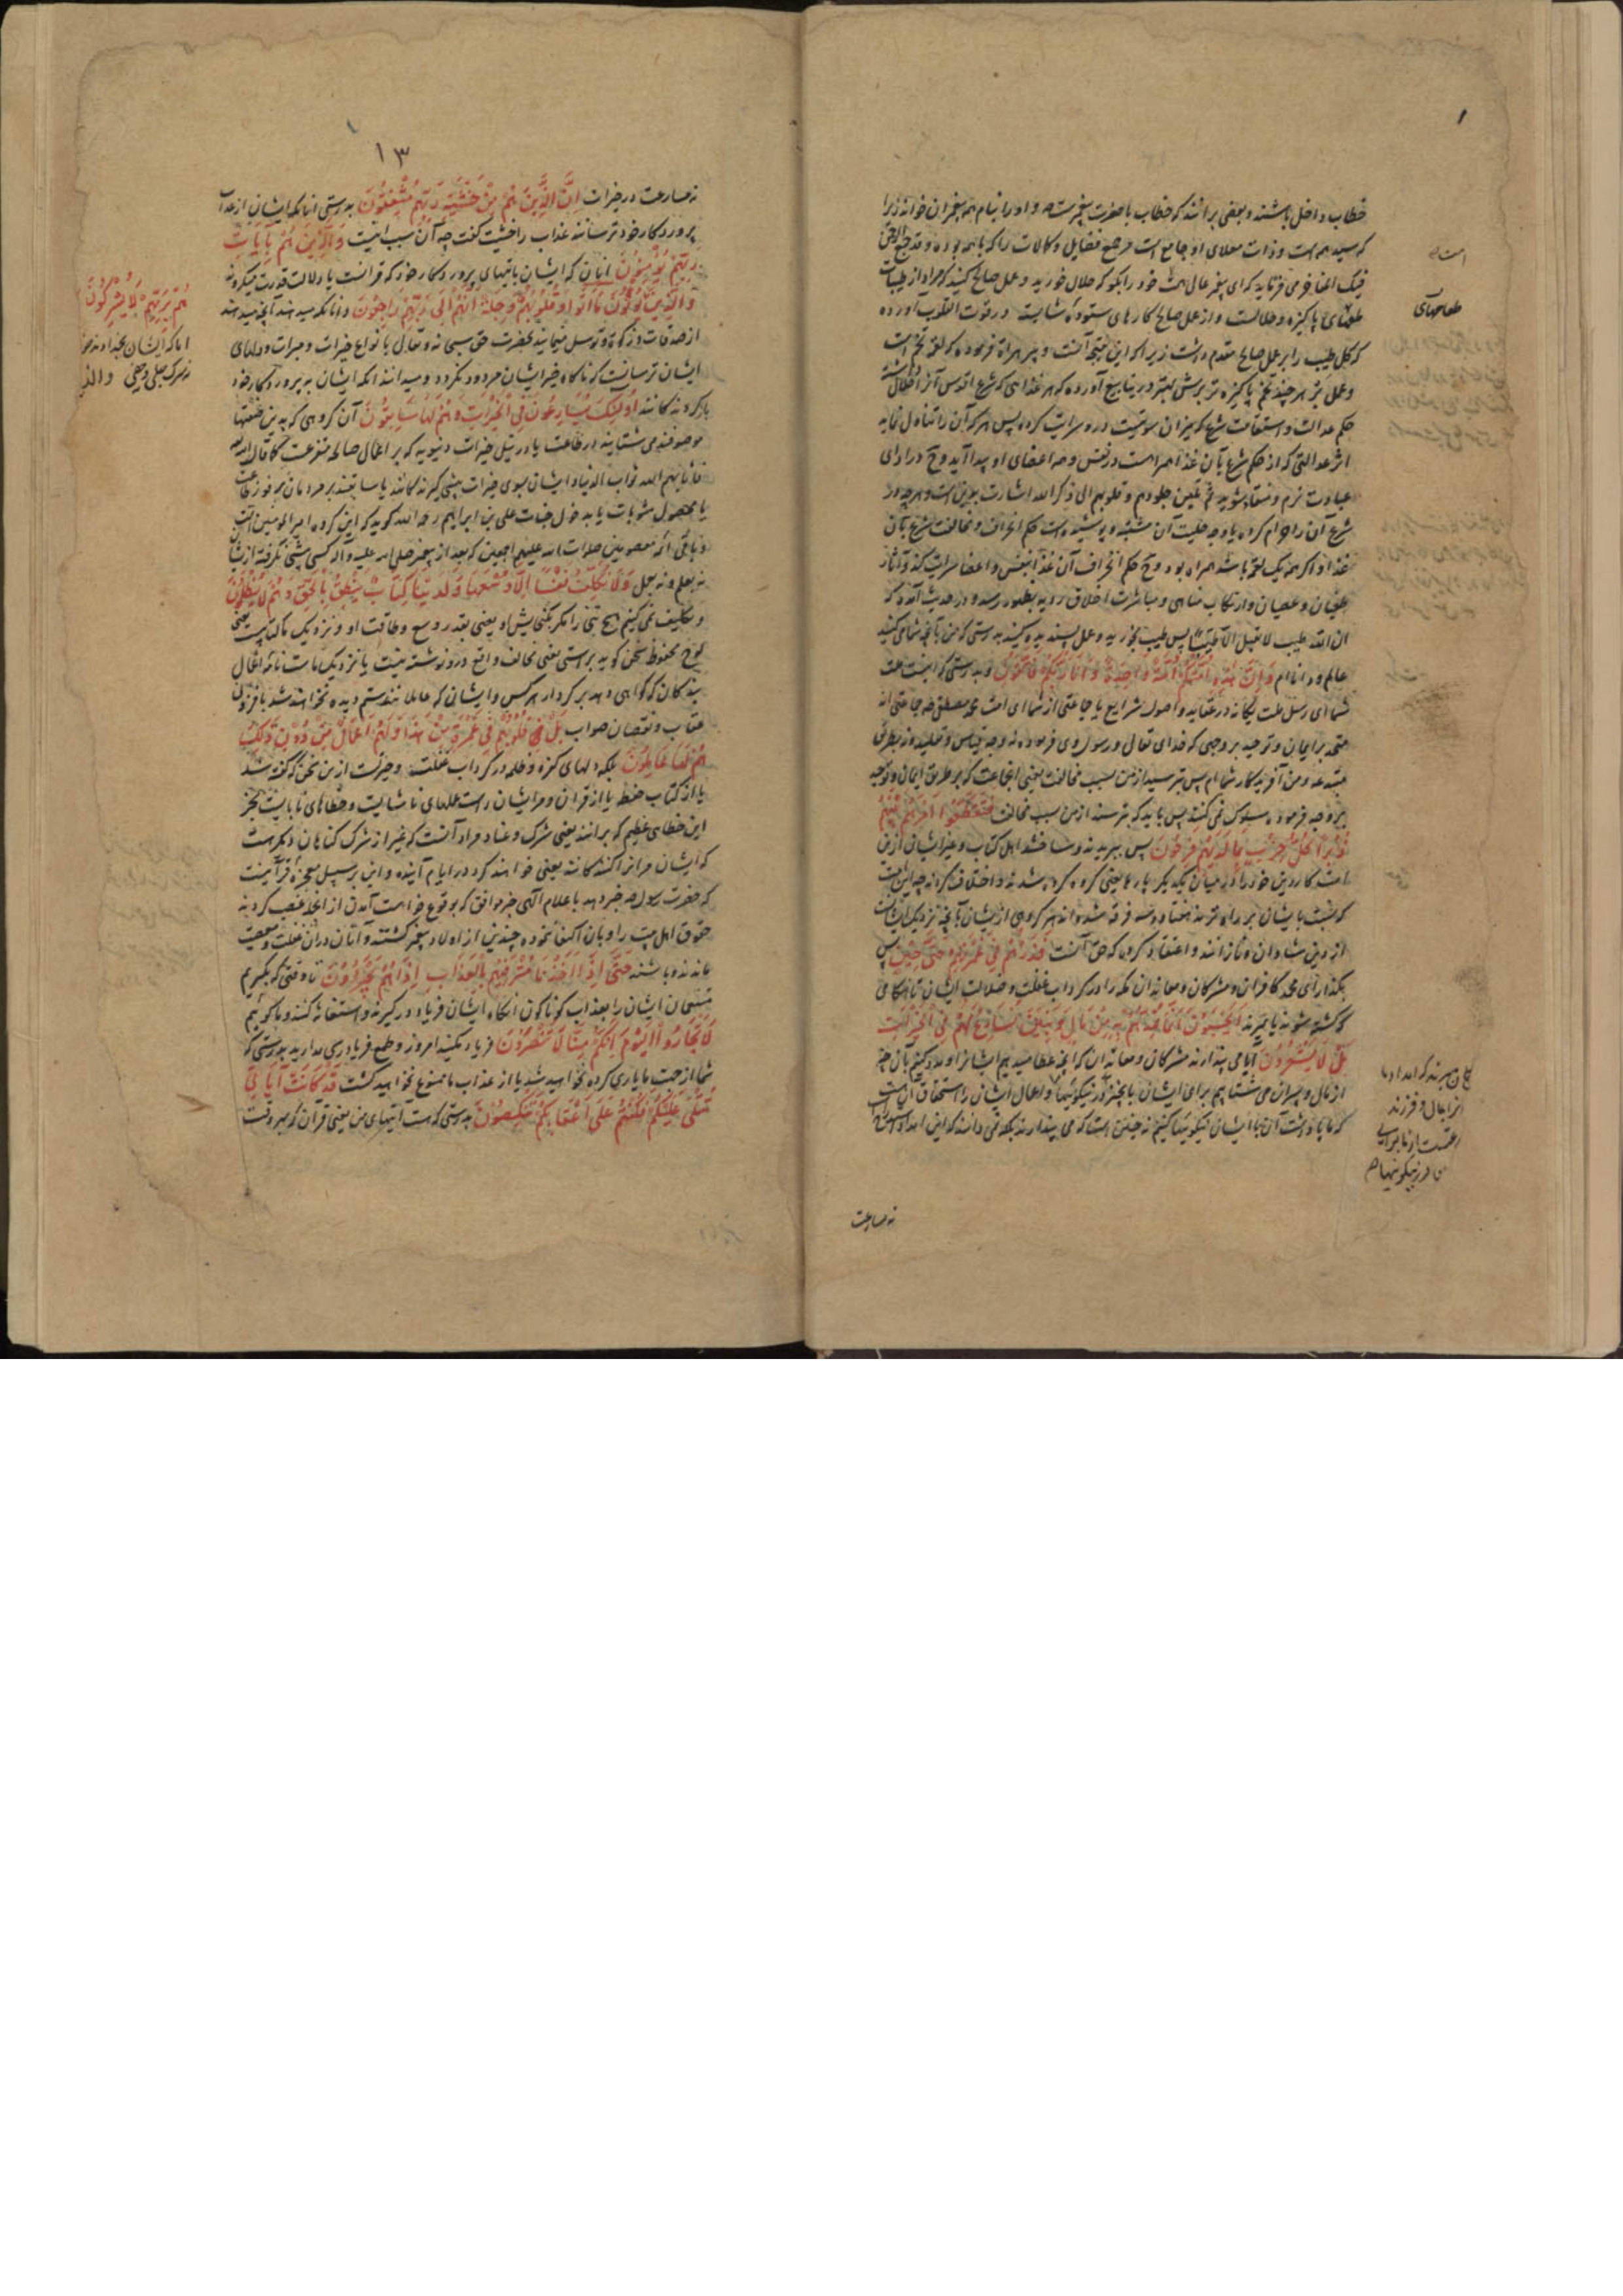 خطاب داخل باشند و بعضی برانند که خطاب با حضرت پیغمبرست و او را بنام همه پیغمبران خوانده زیرا
که سید همه است و ذات معلای او جامع است جمیع فضایل و کمالات را که با همه بوده
فیک انما می فرماید که ای پیغمبر عالی همت خود را بگو که حلال خورید و عمل صالح کنید که مراد از طیبات
طعامهای پاکیزه و حلالست و از عمل صالح کارهای ستوده شایسته در قوت القلوب آورده
که اکل طیب را بر عمل صالح مقدم داشت زیرا که این نتیجه آنست و پیر هراة فرموده که لقمه تخم است
و عمل بر هر چند تخم پاکیزه تر برش بهتر و در ینابیع آورده که هر غذایی که شرع اقدس آنرا حلال داشته
حکم عدالت و استقامت شرع که میزان سویتست درو سرایت کرده پس هر که آن را تناول نماید
اثر عدالتی که از حکم شرع بآن غذا همراهست در نفس و در اعضای او پیدا آید و در ادای
عبادت نرم و منقاد شوید ثم تلین جلودهم و قلوبهم الی ذکر الله اشارت بدین است و هر چه در
شرع آن را حرام کرده یا وجه حلیت آن مشتبه و پوشیده است حکم انحراف و مخالفت شرع بآن
غذا و اگر همه یک لقمه باشد همراه بود و حکم انحراف آن غذا بنفس و اعضا سرایت کند و آثار
طغیان و عصیان و ارتکاب مناهی و مباشرت اخلاق ردیه بظهور رسد و در حدیث آمده که
ان الله طیب لا یقبل الا طیبا پس طیب خورید و عمل پسندیده کنید بدرستی که من بآنچه شما می کنید
عالم و دانا ام وَاِنَّ هٰذِهِ اُمَّتُکُمْ اُمَّةً وَاحِدَةً وَاَنَا رَبُّکُمْ فَاتَّقُونِ و بدرستی که اینست ملت
شما ای رسل ملت یگانه در عقاید و اصول شرایع یا جماعتی از شما ای امت محمد مصطفی ص جماعتی اند
متحد بر ایمان و توحید بر وجهی که خدای تعالی و رسول وی فرموده نه وجه قیاس و تقلید و نه بطریق
مبتدعه و من آفریدگار شما ام پس بترسید از من بسبب مخالفت یعنی اجماعت که بر طریق ایمان و توحید
بر وجه فرموده سلوک نمی کنند پس باید که بترسند از من بسبب مخالفت فَتَقَطَّعُوا اَمْرَهُمْ بَیْنَهُمْ
زُبُرًا کُلُّ حِزْبٍ بِمَا لَدَیْهِمْ فَرِحُونَ پس ببریدند و ساختند اهل کتاب و غیر ایشان ازین
امت کار دین خود را در میان یکدیگر پارها یعنی گروه گروه شدند و اختلاف کردند
که نسبت بایشان بر راه هفتاد و سه فرقه شدند هر گروهی از ایشان بآنچه نزدیک ایشانست
از دین شادان و نازانند و اعتقاد کرده که حق آنست فَذَرْهُمْ فِی غَمْرَتِهِمْ حَتّٰی حِینٍ پس
بگذار ای محمد کافران و مشرکان و معاندان مکه را در گرداب غفلت و ضلالت ایشان تا هنگامی
که کشته شوند یا بمیرند اَیَحْسَبُونَ اَنَّمَا نُمِدُّهُمْ بِهِ مِنْ مَالٍ وَبَنِینَ نُسَارِعُ لَهُمْ فِی الْخَیْرَاتِ
بَلْ لَا یَشْعُرُونَ آیا می پندارند مشرکان و معاندان که آنچه عطا میدهیم ایشانرا و مدد میکنیم بآن چیز
از مال و پسران می شتابیم برای ایشان بآنچیز در نیکوئیها و اعمال ایشان را استحقاق آن هست
که ما پاداشت آن با ایشان نیکوئیها کنیم نه چنین است که می پندارند بلکه نمی دانند که این امداد استدراج
طعامهای
گمان میبرند که امداد ما
ایشانرا بمال و فرزند
مسارعتست از ما برای
ایشان در نیکوئیها
نه مسارعت
۱۳
نه مسارعت در خیرات اِنَّ الَّذِینَ هُمْ مِنْ خَشْیَةِ رَبِّهِمْ مُشْفِقُونَ بدرستی آنانکه ایشان از عذاب
پروردگار خود ترسانند عذاب را خشیت گفت چه آن سبب اینست وَالَّذِینَ هُمْ بِآیَاتِ
رَبِّهِمْ یُؤْمِنُونَ آنان که ایشان بآیتهای پروردگار خود که قرآنست یا دلالت قدرت میگروند
وَالَّذِینَ یُؤْتُونَ مَا آتَوْا وَقُلُوبُهُمْ وَجِلَةٌ اَنَّهُمْ اِلٰی رَبِّهِمْ رَاجِعُونَ و آنانکه میدهند آنچه میدهند
از صدقات و زکوة و توسل مینمایند بحضرت حق سبحانه و تعالی بانواع خیرات و مبرات و دلهای
ایشان ترسانست که ناگاه خیر ایشان مردود نگردد و میدانند آنکه ایشان به پروردگار خود
بازگردندگانند اُولٰئِکَ یُسَارِعُونَ فِی الْخَیْرَاتِ وَهُمْ لَهَا سَابِقُونَ آن گروهی که بدین صفتها
موصوفند می شتابند در طاعت یا در نیل خیرات دنیویه که بر اعمال صالحه متفرعست کما قال الله
فآتاهم الله ثواب الدنیا و ایشان بسوی خیرات پیشی گیرندگانند یا سابقند بر مردمان بر فوز طاعت
یا بحصول مثوبات یا بدخول جنات علی بن ابراهیم رحمه الله گوید که این گروه امیر المومنین است
و باقی ائمه معصومین صلوات الله علیهم اجمعین که بعد از پیغمبر صلی الله علیه و آله کسی پیشی نگرفته از ایشان
نه بعلم و نه بعمل وَلَا نُکَلِّفُ نَفْسًا اِلَّا وُسْعَهَا وَلَدَیْنَا کِتَابٌ یَنْطِقُ بِالْحَقِّ وَهُمْ لَا یُظْلَمُونَ
و تکلیف نمی کنیم هیچ تنی را مگر بگنجایش او یعنی بقدر وسع و طاقت او و نزدیک ما کتابیست یعنی
لوح محفوظ سخن گوید براستی یعنی مخالف واقع درو نوشته نیست یا نزدیک ماست نامه اعمال
بندگان که گواهی دهد بر کردار هر کس و ایشانی که عاملانند ستم دیده نخواهند شد بافزونی
عقاب و نقصان صواب بَلْ قُلُوبُهُمْ فِی غَمْرَةٍ مِنْ هٰذَا وَلَهُمْ اَعْمَالٌ مِنْ دُونِ ذٰلِکَ
هُمْ لَهَا عَامِلُونَ بلکه دلهای کفره و ظلمه در گرداب غفلت و حیرتست ازین سخن که گفته شد
یا از کتاب حفظ یا از قرآن و مر ایشان راست عملهای ناشایست و خطاهای نابایست بجز
این خطای عظیم که برانند یعنی شرک و عناد مراد آنست که غیر از شرک گناهان دیگر هست
که ایشان مر آنرا کنندگانند یعنی خواهند کرد در ایام آینده و این بر سبیل معجزه قرآنیست
که حضرت رسول ص خبر دهد باعلام الهی خبر موافق که بوقوع خواهست آمدن از آنجمله غصب کردند
حقوق اهل بیت را و بآن اکتفا نموده چندین از اولاد پیغمبر کشتند و آنان دران غفلت و معصیت
مانده باشند حَتّٰی اِذَا اَخَذْنَا مُتْرَفِیهِمْ بِالْعَذَابِ اِذَا هُمْ یَجْأَرُونَ تا وقتی که بگیریم
متنعمان ایشان را بعذاب گوناگون آنگاه ایشان فریاد درگیرند و استغاثه کنند و ما گوئیم
لَا تَجْأَرُوا الْیَوْمَ اِنَّکُمْ مِنَّا لَا تُنْصَرُونَ فریاد مکنید امروز و طمع فریادرسی مدارید بدرستی که
شما از جهت ما یاری کرده نخواهید شد یا از عذاب ما ممنوع نخواهید گشت قَدْ کَانَتْ آیَاتِی
تُتْلٰی عَلَیْکُمْ فَکُنْتُمْ عَلٰی اَعْقَابِکُمْ تَنْکِصُونَ بدرستی که هست آیتهای من یعنی قرآن که هر وقت
هُمْ بِرَبِّهِمْ لَا یُشْرِکُونَ
نه شرک جلی و خفی والذین